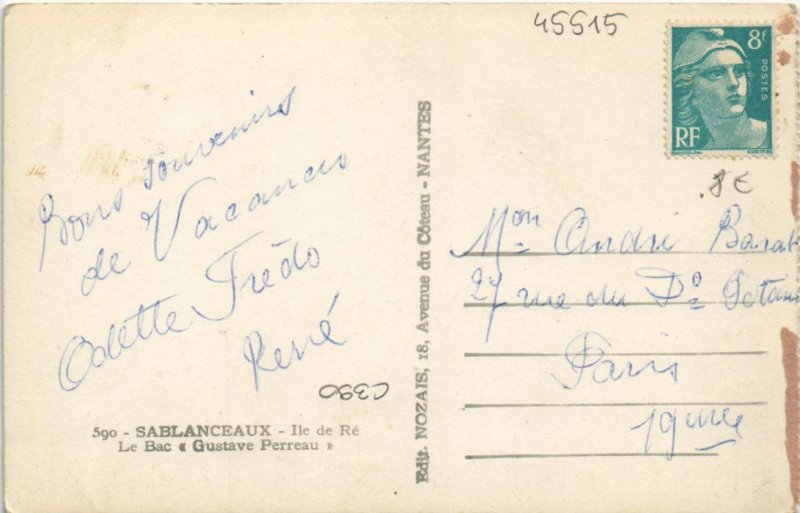 45515
8f
POSTES
RF
8€
Bons souvenirs
de Vacances
Odette Frédo
René
C390
590 - SABLANCEAUX - Ile de Ré
Le Bac « Gustave Perreau »
Edit. NOZAIS, 18, Avenue du Côteau - NANTES
Mon André
27 rue du Dr
Paris
19me